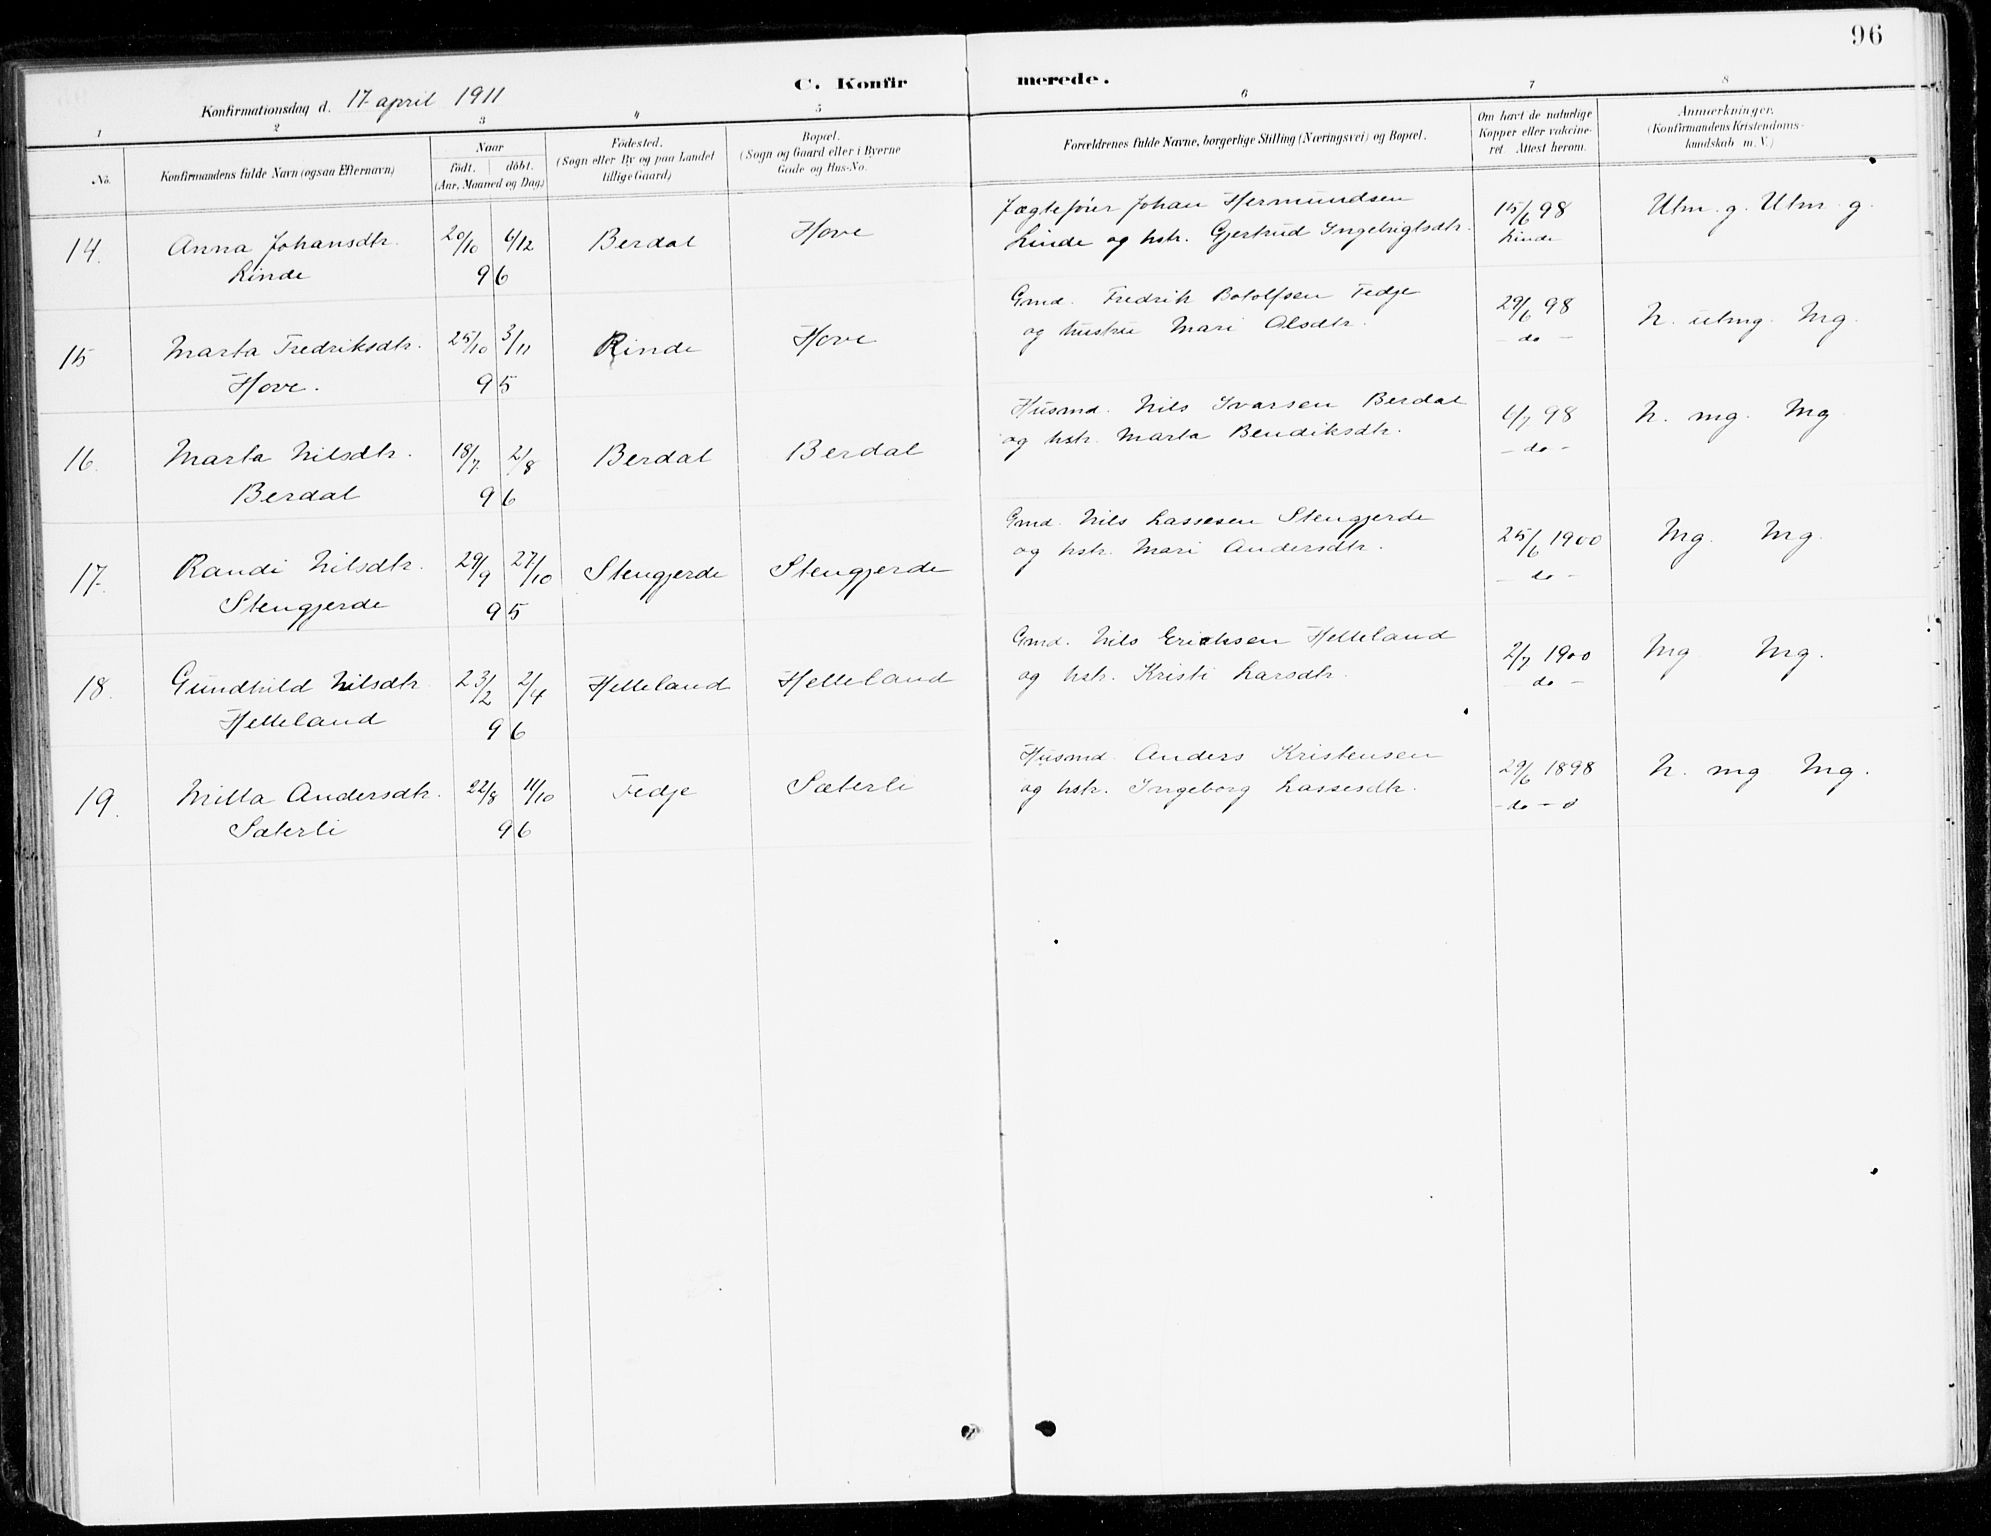 96
C. Konfirmerede.
Konfirmationsdag d. 17. april 1911
1 2 3 4 5 6 7 8
No.
Konfirmandens fulde Navn (ogsaa Efternavn)
Naar
født. døbt.
(Aar, Maaned og Dag)
Fødested.
(Sogn eller By og paa Landet
tillige Gaard)
Bopæl.
(Sogn og Gaard eller i Byerne
Gade og Hus-No.
Forældrenes fulde Navne, borgerlige Stilling (Næringsvei) og Bopæl.
Om havt de naturlige
Kopper eller vakcine-
ret. Attest herom.
Anmærkninger.
(Konfirmandens Kristendoms-
kundskab m. V.)
14. Anna Johansdtr. 20/10 6/12 Berdal Hove Jægtefører Johan Hermundsen 15/6 98 Utm. g. Utm. g.
Linde 96 Linde og hstr. Gjertrud Ingebrigtsdtr. Linde
15 Marta Fredriksdtr. 25/10 3/11 Rinde Hove Gmd. Fredrik Botolfsen Fedje 29/6 98 N. utmg. Mg.
Hove. 95 og hustru Mari Olsdtr. - do -
16. Marta Nilsdtr. 18/7 2/8 Berdal Berdal Husmd. Nils Ivarsen Berdal 6/7 98 N. mg. Mg
Berdal 96 og hstr. Marta Bendiksdtr. - do -
17. Randi Nilsdtr. 29/9 27/10 Stengjerde Stengjerde Gmd. Nils Lassesen Stengjerde 25/6 1900 Mg. Mg.
Stengjerde 95 og hstr. Mari Andersdtr. - do -
18. Gundhild Nilsdtr. 23/2 2/4 Helleland Helleland Gmd. Nils Eriksen Helleland 2/7 1900 Mg Mg.
Helleland 96 og hstr. Kristi Larsdtr. - do -
19. Milla Andersdtr. 22/8 11/10 Fedje Sæterli Husmd. Anders Kristensen 29/6 1898 N. mg Mg.
Sæterli 96 og hstr. Ingeborg Lassesdtr. - do -